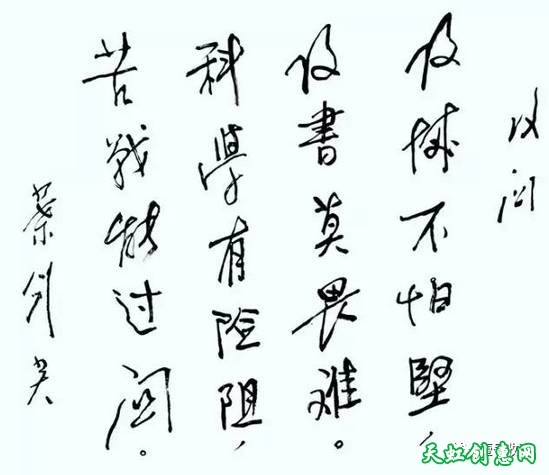 攻関
攻城不怕堅，
攻書莫畏难。
科學有险阻，
苦战能过関。
葉剑英
天虹创意网